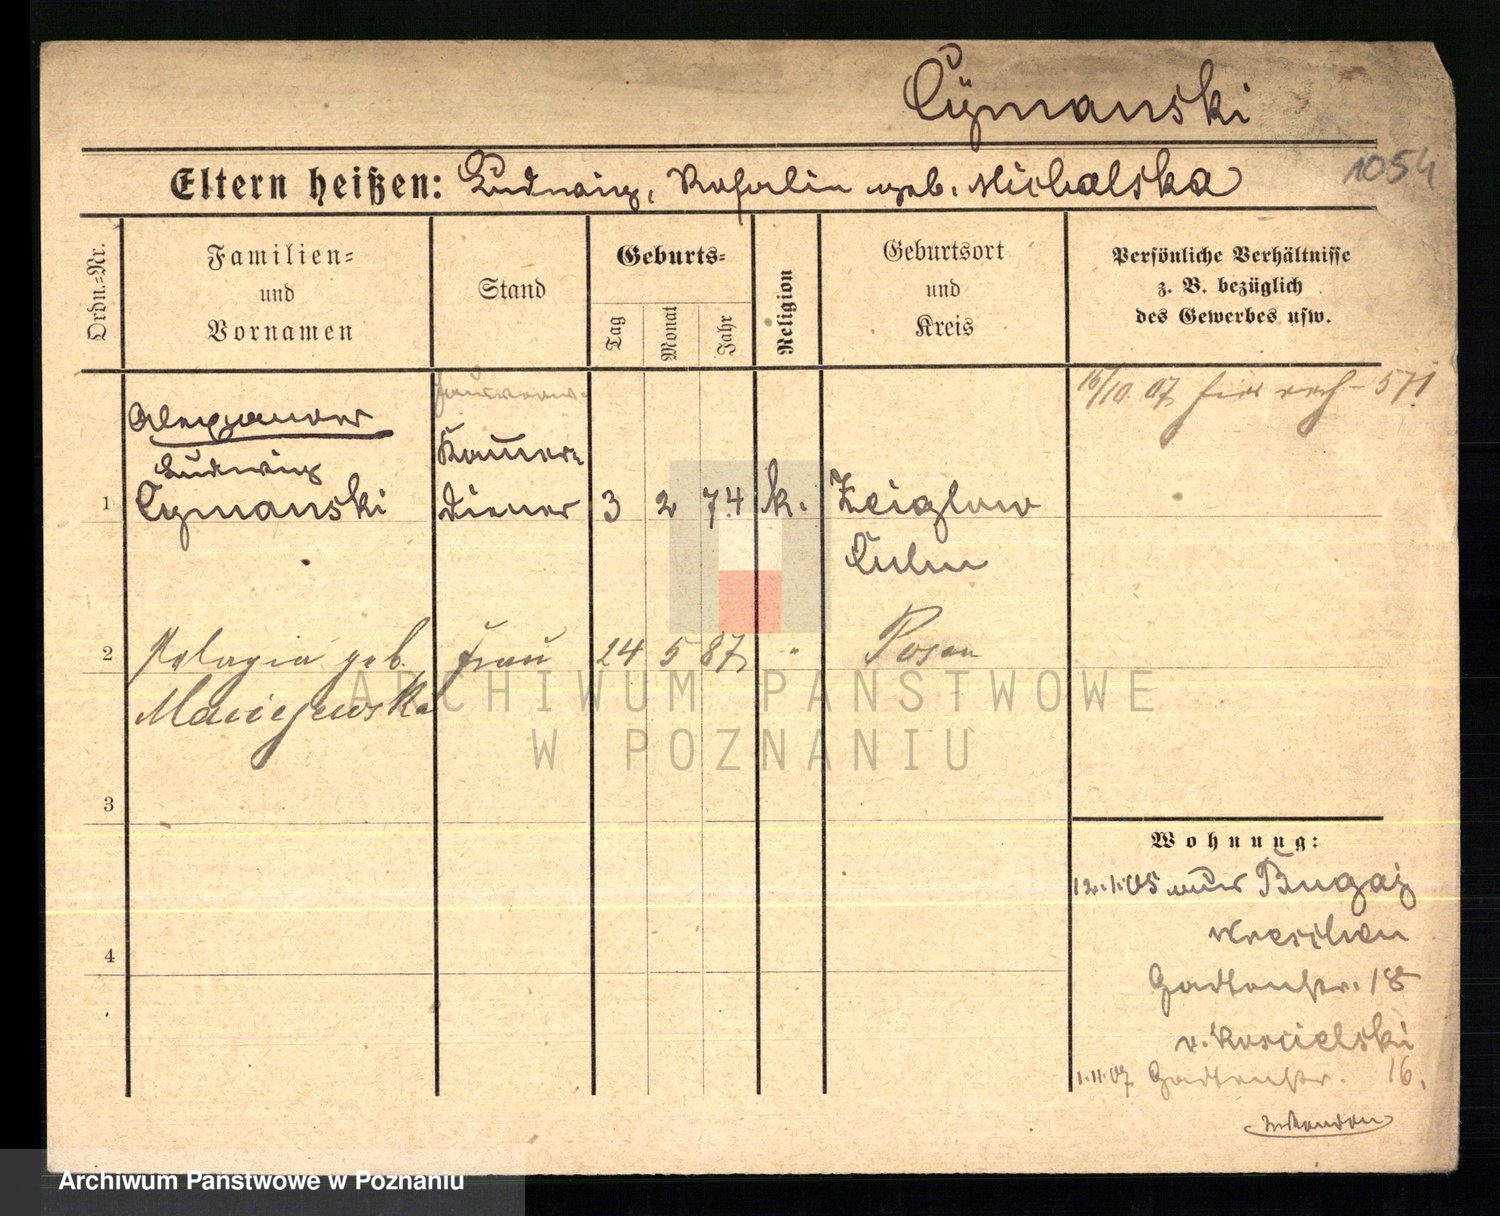 Cymanski
1054
Eltern heißen: Ludwig, Rosalie geb. Michalska
Ordn.-Nr.
Familien-
und
Vornamen
Stand
Geburts-
Tag
Monat
Jahr
Religion
Geburtsort
und
Kreis
Persönliche Verhältnisse
z. B. bezüglich
des Gewerbes usw.
16/10 07 571
Alexander
Ludwig
1 Cymanski
Kammer-
diener 3 2 74 k.
Culm
2 Pelagia geb. Frau 24 5 87 " Posen
Maciejewska
3
4
Wohnung:
12.1.05 Bugaj
Wreschen
Gartenstr. 18
v. Koscielski
1.11.07 Gartenstr. 16.
ARCHIWUM PAŃSTWOWE
W POZNANIU
Archiwum Państwowe w Poznaniu